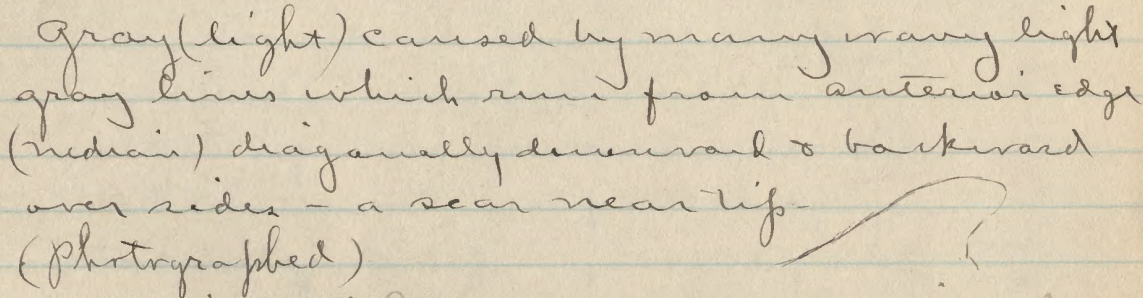 Gray (light) caused by many wavy light
gray lines which run from anterior edge
(median) diagonally downward & backward
over sides - a scar near tip -
(Photographed)